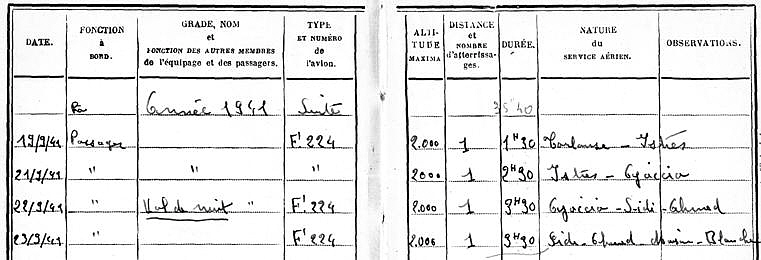 DATE. FONCTION à BORD. GRADE, NOM et FONCTION DES AUTRES MEMBRES de l'équipage et des passagers. TYPE ET NUMÉRO de l'avion. ALTITUDE MAXIMA DISTANCE et NOMBRE d'atterrissages. DURÉE. NATURE du SERVICE AÉRIEN. OBSERVATIONS.
Année 1941 Suite 35 40
19/9/41 Passager F! 224 2.000 1 1H30 Toulouse - Istres
21/9/41 " " " 2000 1 2H30 Istres - Ajaccio
22/9/41 " Vol de nuit " F! 224 2.000 1 3H30 Ajaccio - Sidi - Ahmed
23/9/41 " F! 224 2.000 1 3H30 Sidi - Ahmed - Maison - Blanche